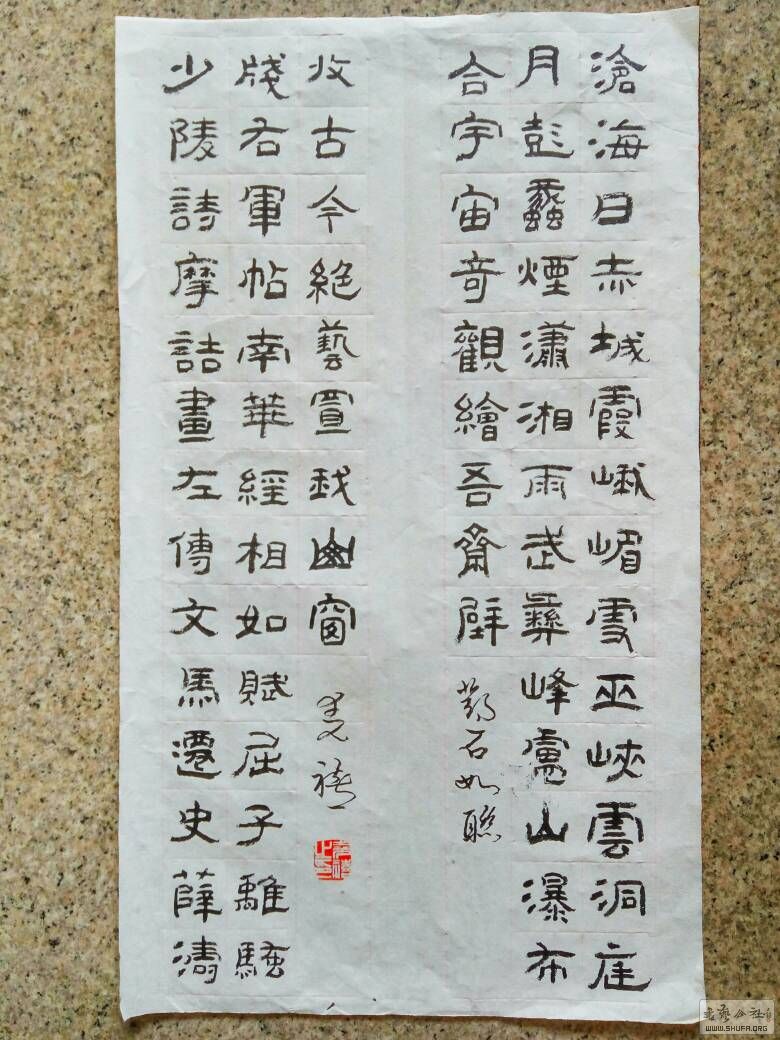 滄海日赤城霞峨嵋雪巫峽雲洞庭
月彭蠡煙瀟湘雨武彝峰廬山瀑布
合宇宙奇觀繪吾齋壁
鄧石如聯
少陵詩摩詰畫左傳文馬遷史薛濤
牋右軍帖南華經相如賦屈子離騷
收古今絕藝置我幽窗
WWW.SHUFA.ORG